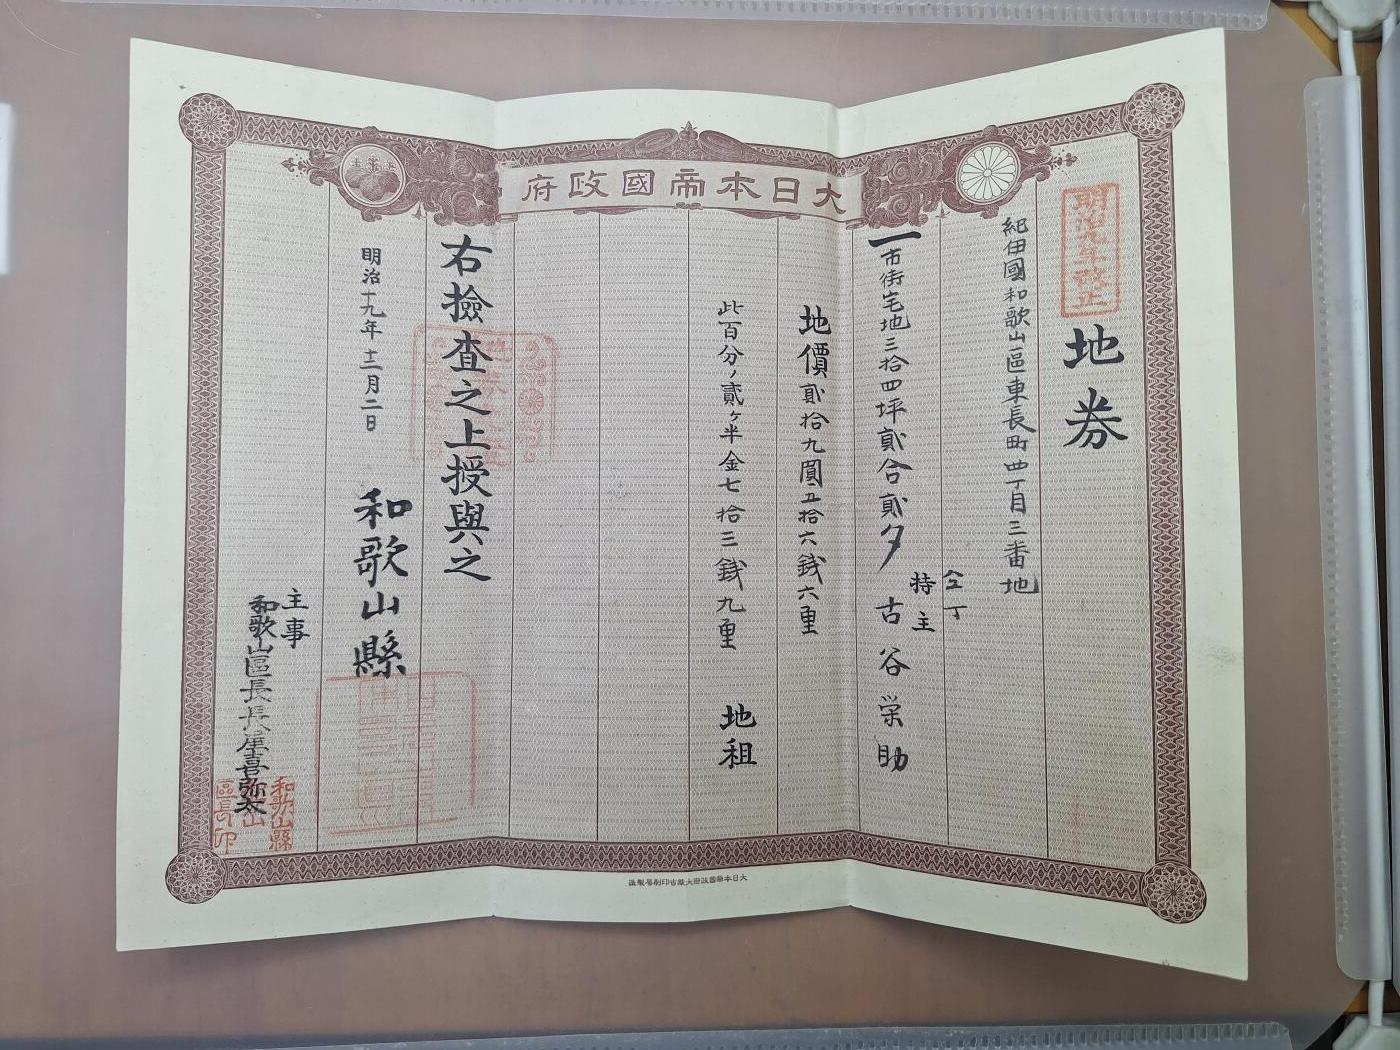 大日本帝國政府
明治九年改正
地券
紀伊國和歌山區東長町四丁目三番地
一市街宅地三拾四坪貳合貳夕
仝丁
持主
古谷栄助
地價貳拾九圓五拾六錢六厘
此百分ノ貳ケ半金七拾三錢九厘
地租
右撿査之上授與之
明治十九年十二月二日
和歌山縣
主事
和歌山區長長屋喜弥太
和歌山縣
區長印
大日本帝國政府大蔵省印刷局製造